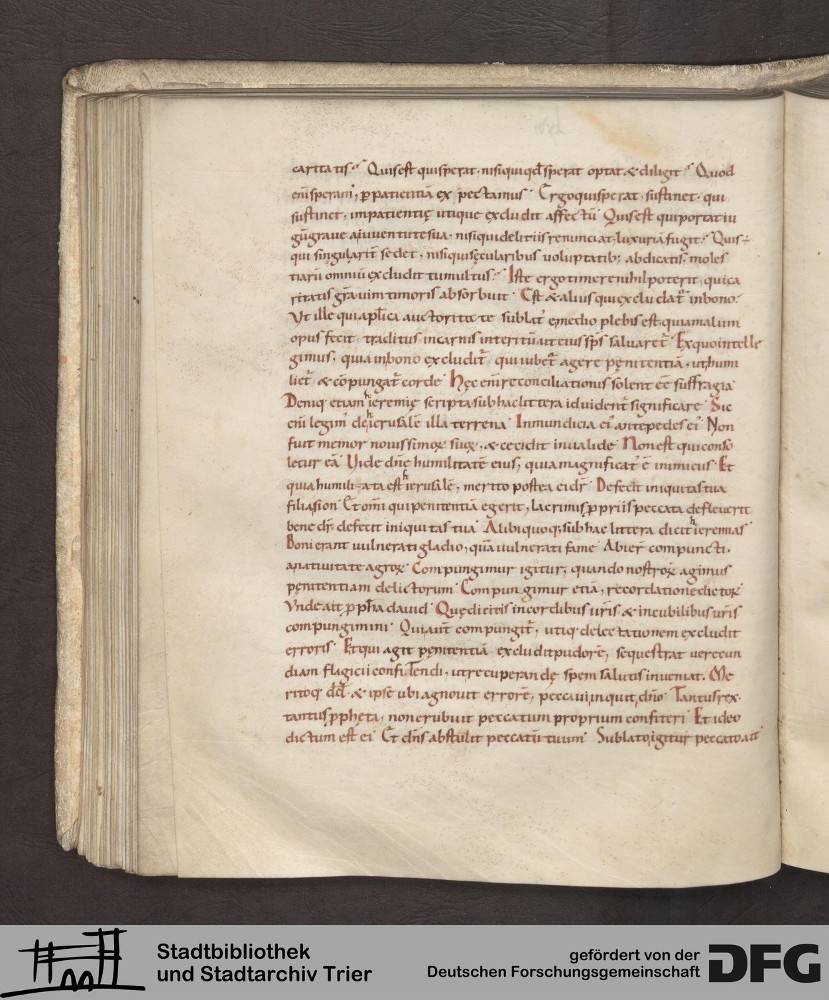 caritatis. Quis est qui sperat. nisi qui qđ sperat optat & diligit. Quod
eni speram', p patientiā expectamus. Ergo qui sperat. sustinet. qui
sustinet. impatientiȩ utique excludit affectū. Quis est qui portat iu
gū graue a iuuentute sua. nisi qui delitiis renunciat, luxuriā fugit. Quis
qui singularit sedet. nisi qui sȩcularibus voluptatib; abdicatis. moles
tiarū omniū excludit tumultus. Iste ergo timere nihil poterit, quē ca
ritatis gra uim timoris absorbuit. Est & alius qui excludat in bono.
Vt ille qui aplica auctoritate sublat' e medio plebis est, quia malum
opus fecit. traditus in carnis interitū ut eius sps saluaret'. Ex quo intelle
gimus, quia in bono excludit', qui iubet' agere pȩnitentiā, ut humi
liet' & cōpungat' corde. Hȩc eni reconciliationis solent eē suffragia
Deniq, etiam ieremiȩ scripta sub hac littera id uident' significare. Sic
eni legim' de ierusalē illa terrena. Inmundicia ei' ante pedes ei'. Non
fuit memor nouissimoꝝ suoꝝ. & cecidit inualide. Non est qui conso
letur eā. Vide dnē humilitatē eius, quia magnificat' ē inimicus. Et
quia humiliata est ierusalē, merito postea ei dr. Defecit iniquitas tua
filia sion. Et omi qui penitentiā egerit, lacrimis ppriis peccata defleuerit
bene dr. defecit iniquitas tua. Alibi quoq, sub hac littera dicit ieremias
Boni erant uulnerati gladio, quā uulnerati fame. Abier compuncti.
a natiuitate agroꝝ. Compungimur igitur, quando nostroꝝ agimus
pȩnitentiam delictorum. Compungimur etiā, recordatione dictoꝝ
Vnde ait ppha dauid. Quȩ dicitis in cordibus uris & in cubilibus uris
compungimini. Qui aut compungit', utiq delectationem excludit
erroris. Et qui agit pȩnitentiā excludit pudorē, sequestrat uerecun
diam flagicii confitendi, ut recuperandȩ spem salutis inueniat. Me
ritoq dd & ipse ubi agnouit errorē, peccaui inquit dno. Tantus rex.
tantus ppheta, non erubuit peccatum proprium confiteri. Et ideo
dictum est ei. Et dns abstulit peccatū tuum. Sublato igitur peccato ait
Stadtbibliothek
und Stadtarchiv Trier
gefördert von der
Deutschen Forschungsgemeinschaft
DFG